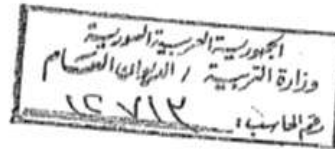 الجمهورية العربية السورية
وزارة التربية / الديوان العام
رقم الحاسب: ١٢٧١٣